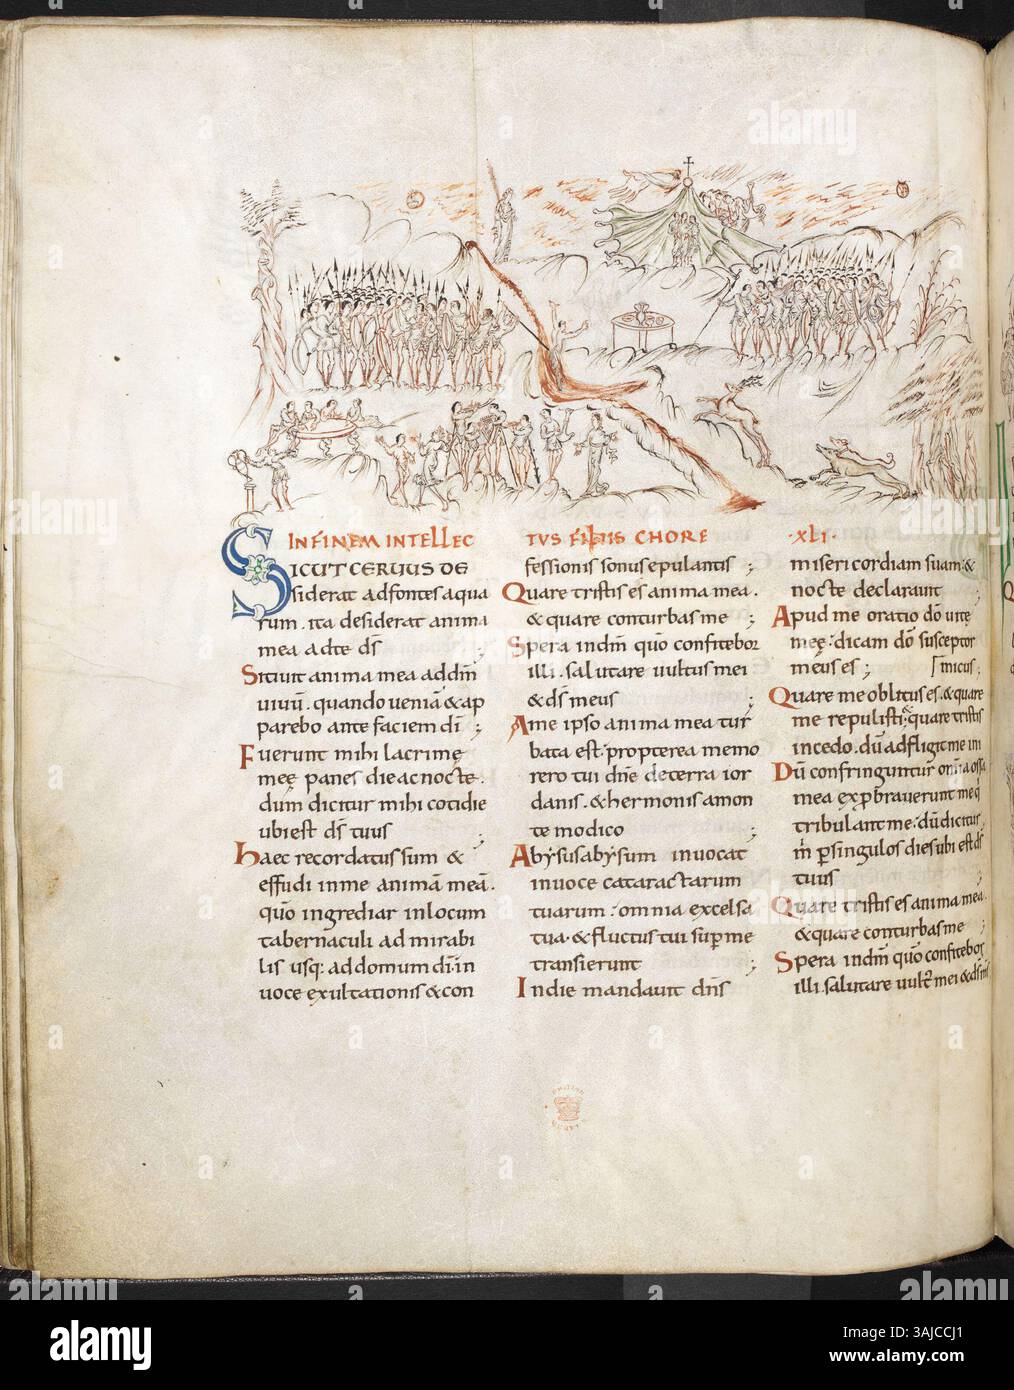 IN FINEM INTELLEC
SICUT CERUUS DE
siderat adfontes aqua
rum. ita desiderat anima
mea adte d̄s ;
Sitiuit anima mea addm̄
uiuū. quando ueniā & ap
parebo ante faciem dī ;
Fuerunt mihi lacrimę
meę panes die ac nocte.
dum dicitur mihi cotidie
ubiest d̄s tuus ;
Haec recordatus sum &
effudi inme animā meā.
quō ingrediar inlocum
tabernaculi ad mirabi
lis usq; addomum dī. in
uoce exultationis & con
TUS FILIIS CHORE
fessionis sonus epulantis ;
Quare tristis es anima mea.
& quare conturbas me ;
Spera indm̄ quō confitebor
illi. salutare uultus mei
& d̄s meus ;
Ame ipso anima mea tur
bata est. propterea memo
rero tui dn̄e deterra ior
danis. & hermonis amon
te modico ;
Abẏsus abẏsum inuocat
inuoce cataractarum
tuarum. omnia excelsa
tua. & fluctus tui sup me
transierunt ;
Indie mandauit dn̄s
·XLI·
misericordiam suam. &
nocte declarauit
Apud me oratio dō uitę
meę. dicam dō susceptor
meus es ; [micus ;
Quare me oblitus es. & quare
me repulisti. & quare tristis
incedo. dū adfligit me ini
Dū confringuntur om̄a ossa
mea exp̄brauerunt me q̄
tribulant me. dū dicitur
m̄ p singulos dies ubi est d̄s
tuus
Quare tristis es anima mea.
& quare conturbas me ;
Spera indm̄ quō confitebor
illi. salutare uult' mei & d̄s m̄s
alamy
Image ID: 3AJCCJ1
www.alamy.com